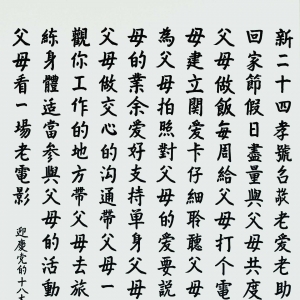 新二十四孝號召敬老愛老助
回家節假日盡量與父母共度
父母做飯每周給父母打個電
母建立関愛卡仔細聆聽父母
為父母拍照對父母的愛要説
母的業余愛好支持單身父母
父母做交心的沟通帶父母一
觀你工作的地方帶父母去旅
練身體适當參與父母的活動
父母看一場老電影
迎慶党的十八大